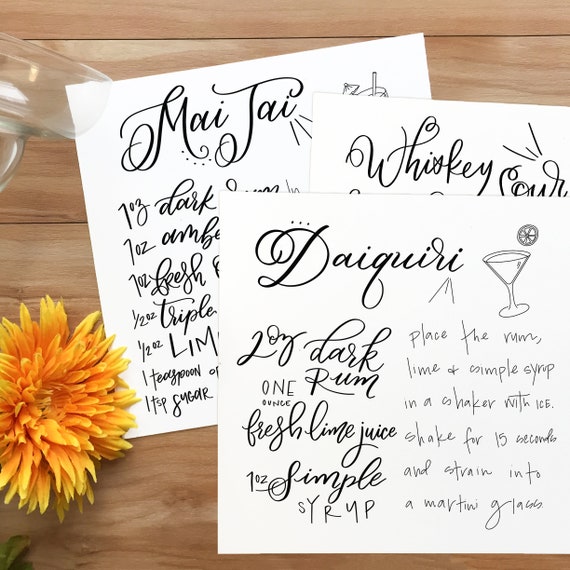 Mai Tai
1oz dark rum
1oz ambe
1oz fresh
1/2oz triple
1/2oz LIM
1 teaspoon
1 tsp SUGAR
Whiskey
Sour
Daiquiri
2oz dark
ONE RUM
OUNCE
fresh lime juice
1oz Simple
SYRUP
place the rum,
lime & simple syrup
in a shaker with ice.
shake for 15 seconds
and strain into
a martini glass.